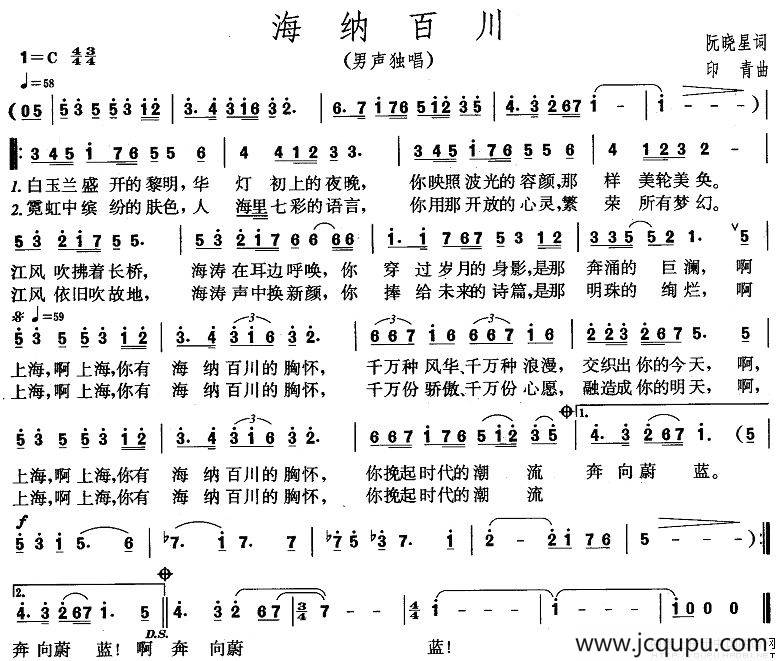 海纳百川
(男声独唱)
阮晓星词
印青曲
1=C 4/4 3/4
♩=58
(05 | 5 3 5 5 3 12 | 3. 4 3 1 6 3 2. | 6. 7 1 7 6 5 1 2 3 5 | 4. 3 2 6 7 1 | 1 - - | 1 - - ) |
3 4 5 1 7 6 5 5 6 | 4 4 1 2 3 3. | 3 4 5 1 7 6 5 5 6 | 4 1 2 3 2 - |
1.白玉兰盛开的黎明,华灯初上的夜晚,你映照波光的容颜,那样美轮美奂。
2.霓虹中缤纷的肤色,人海里七彩的语言,你用那开放的心灵,繁荣所有梦幻。
5 3 2 1 7 5 5. | 5 3 2 1 7 6 6 6 | 1. 1 7 6 7 5 3 5 | 3 3 5 5 2 1. | 5
江风吹拂着长桥,海涛在耳边呼唤,你穿过岁月的身影,是那奔涌的巨澜,啊
江风依旧吹故地,海涛声中换新颜,你捧给未来的诗篇,是那明珠的绚烂,啊
♩=59
5 3 5 5 3 1 2 | 3. 4 3 1 6 3 2. | 6 6 7 1 6 6 7 1 6 | 2 2 3 2 6 7 5. 5 |
上海,啊上海,你有海纳百川的胸怀,千万种风华、千万种浪漫,交织出你的今天,啊,
上海,啊上海,你有海纳百川的胸怀,千万份骄傲、千万份心愿,融造成你的明天,啊,
1.
5 3 5 5 3 1 2 | 3. 4 3 1 6 3 2. | 6 6 7 1 7 6 5 1 2 3 5 | 4. 3 2 6 7 1. (5 |
上海,啊上海,你有海纳百川的胸怀,你挽起时代的潮流奔向蔚蓝。
上海,啊上海,你有海纳百川的胸怀,你挽起时代的潮流
f
5 3 1 5. 6 | ♭7. 1 7. 7 | ♭7 5 ♭3 7. 1 | 2 - 2 1 7 6 | 5 - - ) :||
2.
4. 3 2 6 7 1. 5 || 4. 3 2 6 7 1 | 3/4 7 - - | 4/4 1 - - - | 1 - - - | 1 0 0 0 ||
D.S.
奔向蔚蓝!啊奔向蔚蓝!
www.jcqupu.com